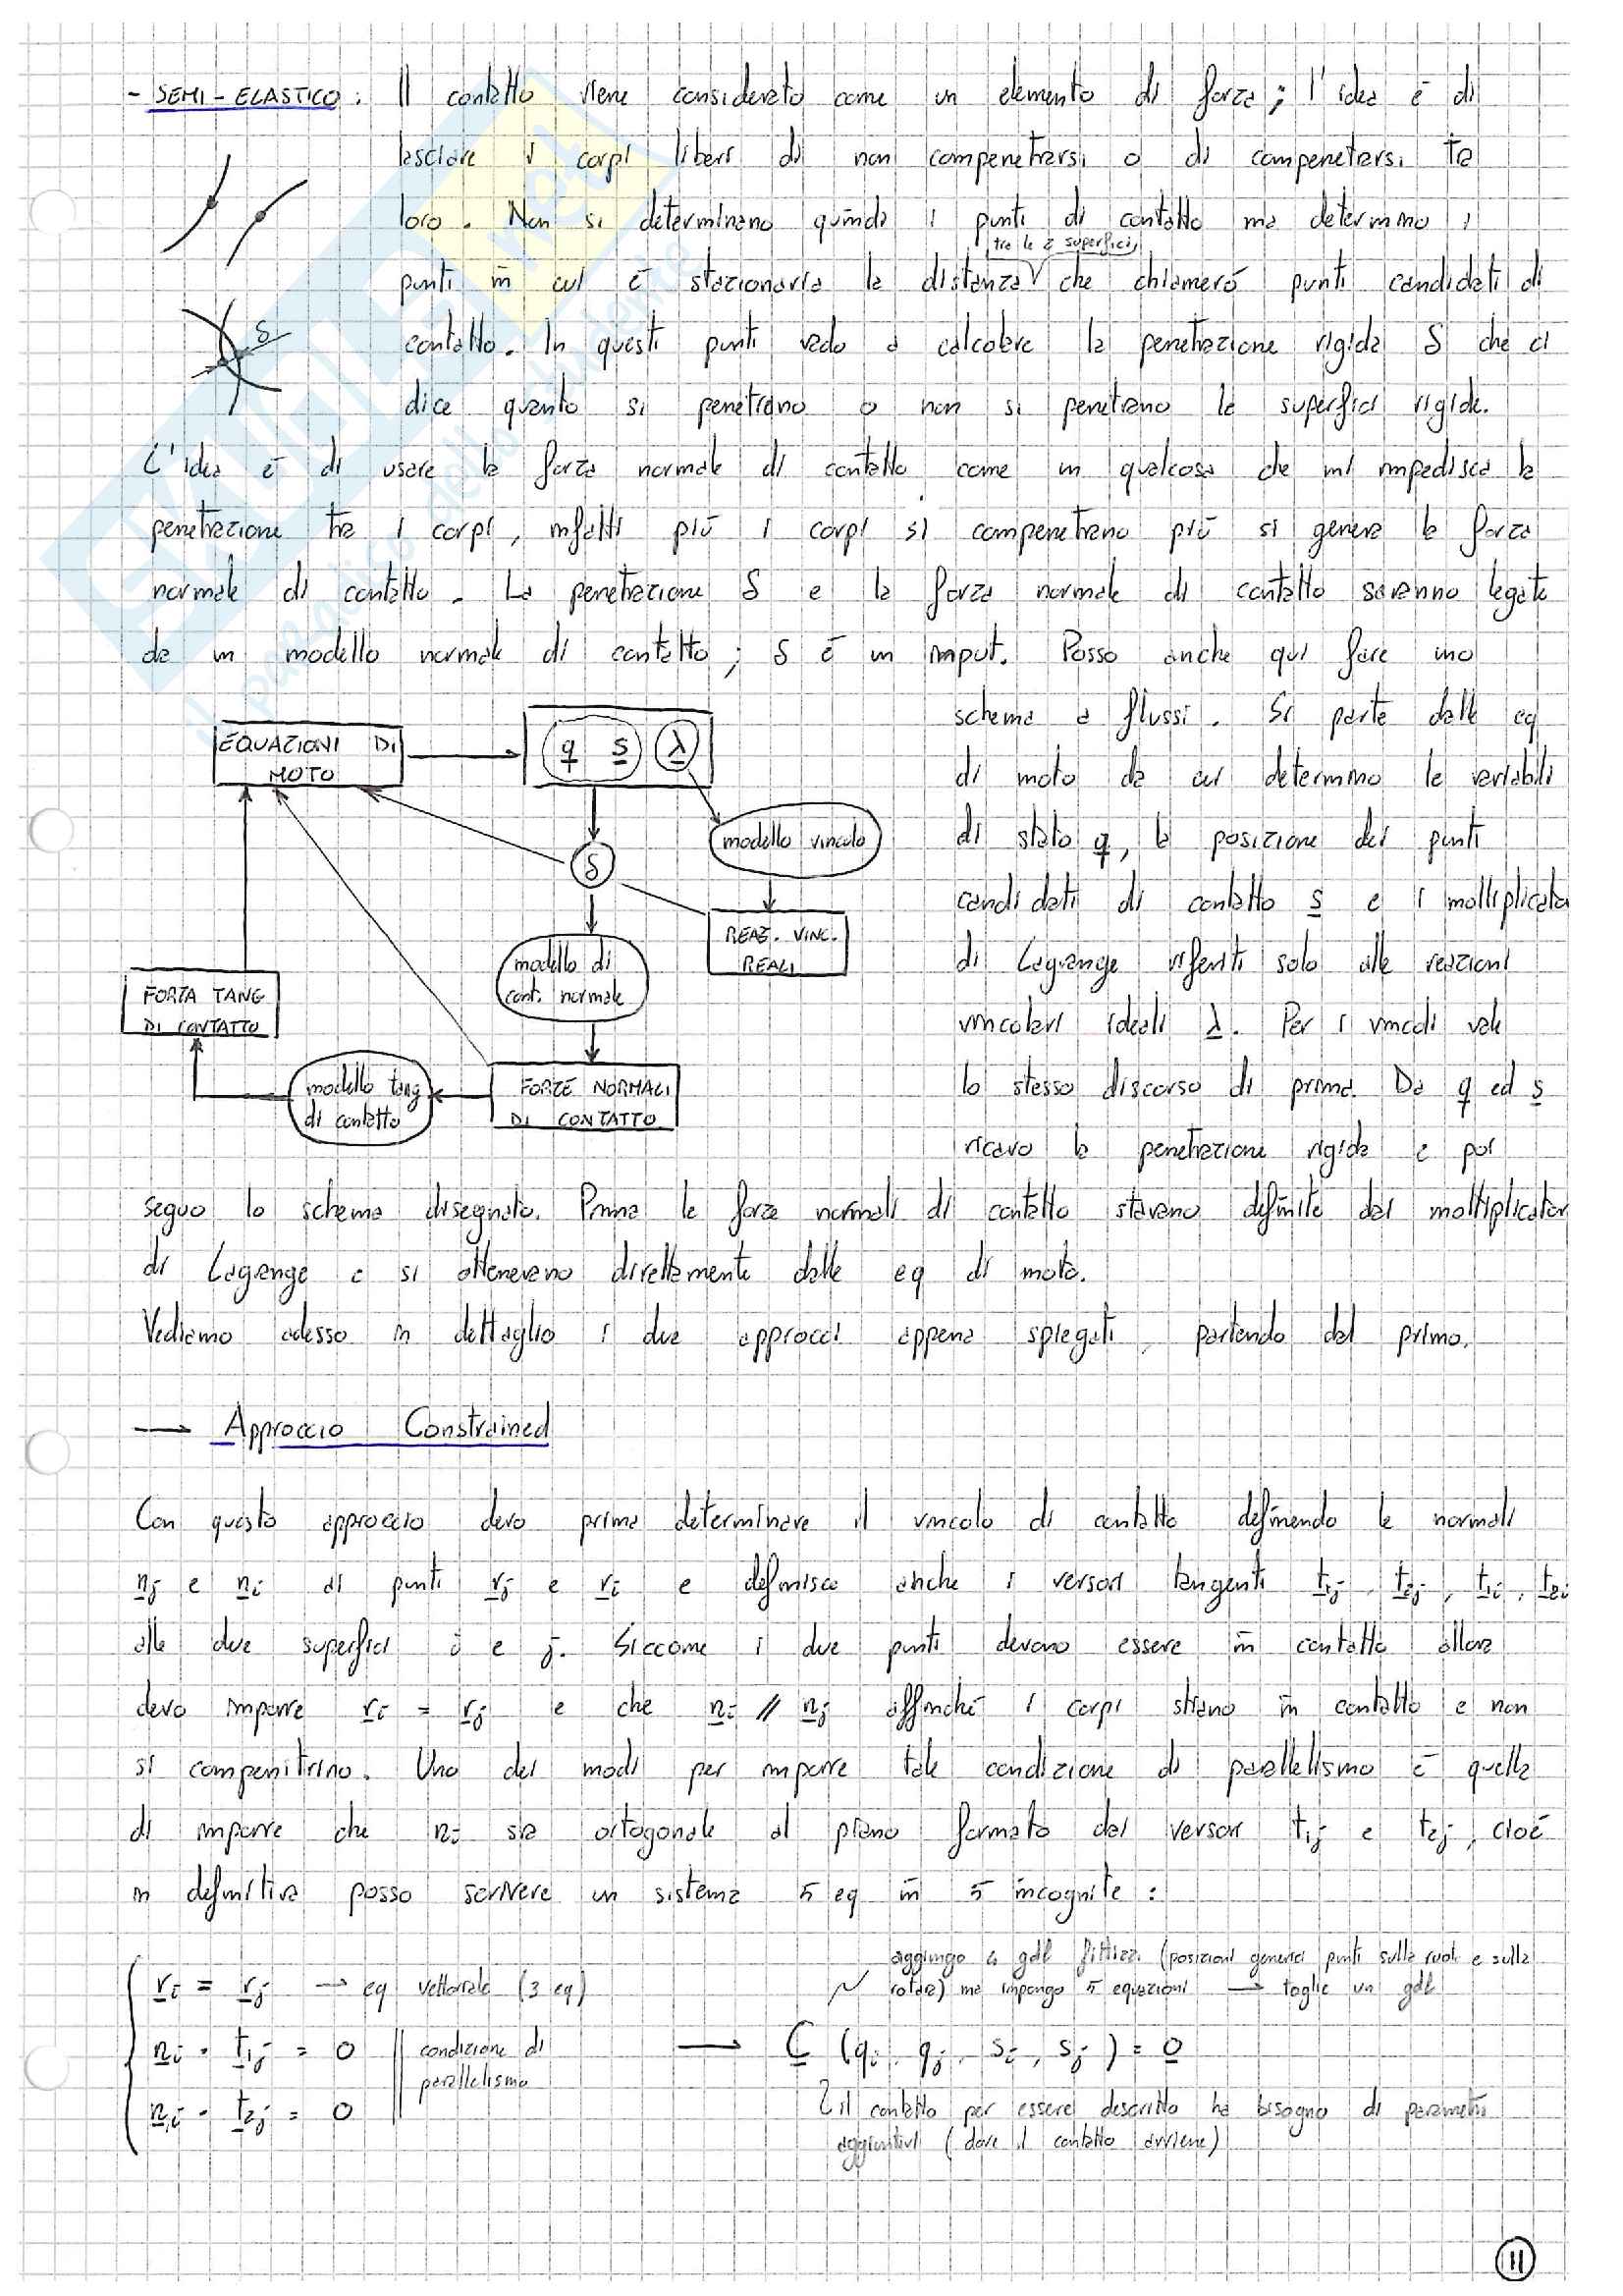 - SEMI-ELASTICO: Il contatto viene considerato come un elemento di forza; l'idea è di
lasciare i corpi liberi di non compenetrarsi o di compenetrarsi tra
loro. Non si determinano quindi i punti di contatto ma determino i
tra le 2 superfici,
punti in cui è stazionaria la distanza che chiamerò punti candidati di
contatto. In questi punti vado a calcolare la penetrazione rigida δ che ci
δ
dice quanto si penetrano o non si penetrano le superfici rigide.
L'idea è di usare la forza normale di contatto come un qualcosa che mi impedisca la
penetrazione tra i corpi, infatti più i corpi si compenetrano più si genera la forza
normale di contatto. La penetrazione δ e la forza normale di contatto saranno legate
da un modello normale di contatto; δ è un imput. Posso anche qui fare uno
schema a flussi. Si parte dalle eq
di moto da cui determino le variabili
di stato q, la posizione dei punti
candidati di contatto s e i moltiplicato
di Lagrange riferiti solo alle reazioni
vincolari ideali λ. Per i vincoli vale
lo stesso discorso di prima. Da q ed s
ricavo la penetrazione rigida e poi
EQUAZIONI DI
MOTO
q s λ
modello vincolo
δ
REAZ. VINC.
REALI
modello di
cont. normale
FORZA TANG
DI CONTATTO
modello tang
di contatto
FORZE NORMALI
DI CONTATTO
seguo lo schema disegnato. Prima le forze normali di contatto stavano definite dai moltiplicator
di Lagrange e si ottenevano direttamente dalle eq di moto.
Vediamo adesso in dettaglio i due approcci appena spiegati, partendo dal primo.
→ Approccio Constrained
Con questo approccio devo prima determinare il vincolo di contatto definendo le normali
nj e ni ai punti rj e ri e definisco anche i versori tangenti t1j, t2j, t1i, t2i
alle due superfici i e j. Siccome i due punti devono essere in contatto allora
devo imporre ri = rj e che ni // nj affinché i corpi stiano in contatto e non
si compenitrino. Uno dei modi per imporre tale condizione di parallelismo è quella
di imporre che ni sia ortogonale al piano formato dai versori t1j e t2j, cioè
in definitiva posso scrivere un sistema 5 eq in 5 incognite:
aggiungo 4 gdl fittizi (posizioni generici punti sulla ruota e sulla
rotaia) ma impongo 5 equazioni → toglie un gdl
ri = rj → eq vettoriale (3 eq)
ni · t1j = 0
ni · t2j = 0
condizione di
parallelismo
→ C (qi, qj, si, sj) = 0
il contatto per essere descritto ha bisogno di parametri
aggiuntivi (dove il contatto avviene)
11